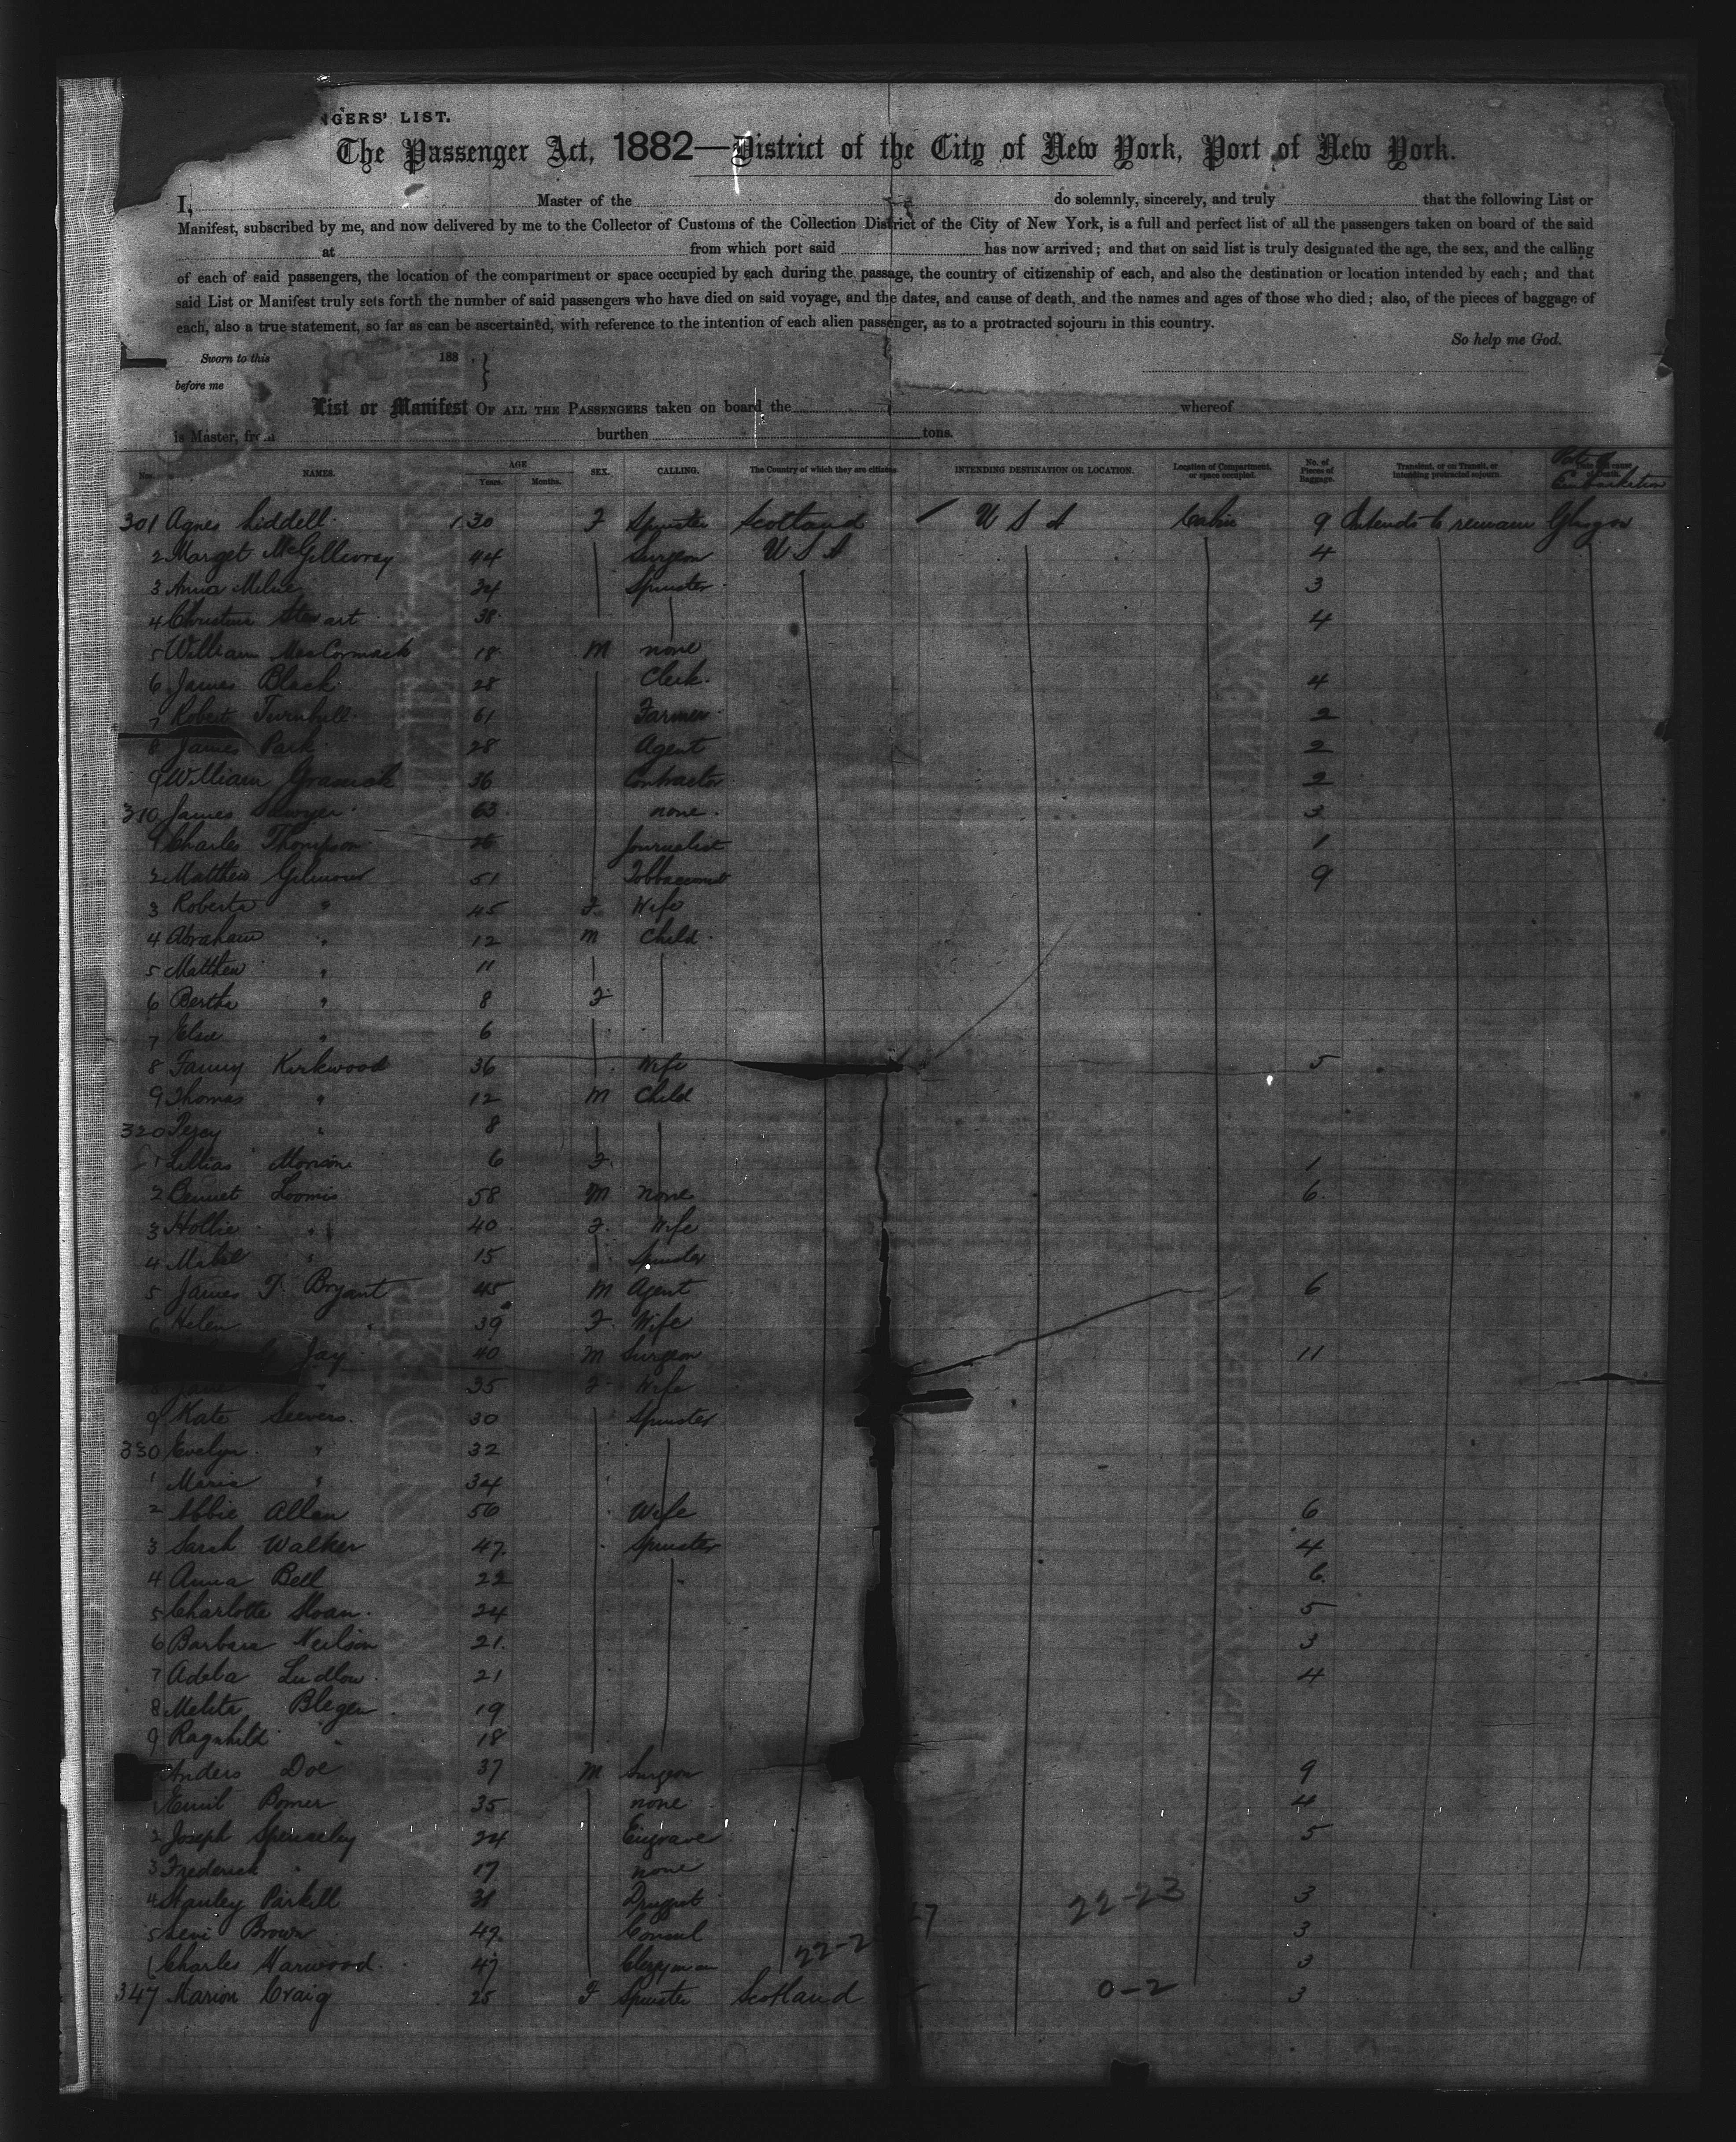 NGERS' LIST.
The Passenger Act, 1882—District of the City of New York, Port of New York.
I, Master of the do solemnly, sincerely, and truly that the following List or
Manifest, subscribed by me, and now delivered by me to the Collector of Customs of the Collection District of the City of New York, is a full and perfect list of all the passengers taken on board of the said
at from which port said has now arrived; and that on said list is truly designated the age, the sex, and the calling
of each of said passengers, the location of the compartment or space occupied by each during the passage, the country of citizenship of each, and also the destination or location intended by each; and that
said List or Manifest truly sets forth the number of said passengers who have died on said voyage, and the dates, and cause of death, and the names and ages of those who died; also, of the pieces of baggage of
each, also a true statement, so far as can be ascertained, with reference to the intention of each alien passenger, as to a protracted sojourn in this country.
So help me God.
Sworn to this 188 .
before me
List or Manifest OF ALL THE PASSENGERS taken on board the whereof
is Master, from burthen tons.
No. NAMES. AGE Years. Months. SEX. CALLING. The Country of which they are citizens. INTENDING DESTINATION OR LOCATION. Location of Compartment, or space occupied. No. of Pieces of Baggage. Transient, or on Transit, or intending protracted sojourn. Embarkation
301 Agnes Liddell 30 F Spinster Scotland U S A Cabin 9 Intends to remain Glasgow
2 Marget McGillivray 44 Surgeon U S A 4
3 Anna Milne 34 Spinster 3
4 Christina Stewart 38 4
5 William MacCormack 18 M none
6 James Black 28 Clerk 4
7 Robert Turnbull 61 Farmer 2
8 James Park 28 Agent 2
9 William 36 Contractor 2
310 James Sawyer 63 none 3
1 Charles Thompson 26 Journalist 1
2 Matthew Gilmour 51 Tobbacconist 9
3 Roberta " 45 F Wife
4 Abraham " 12 M Child
5 Matthew " 11
6 Bertha " 8 F
7 Elsie " 6
8 Fanny Kirkwood 36 Wife 5
9 Thomas " 12 M Child
320 Percy " 8
1 Lillias Morison 6 F 1
2 Bennet Loomis 58 M none 6
3 Hollie " 40 F Wife
4 Mabel " 15 Spinster
5 James T. Bryant 45 M Agent 6
6 Helen " 39 F Wife
Jay 40 M Surgeon 11
8 Jane " 35 F Wife
9 Kate Seevers 30 Spinster
330 Evelyn " 32
1 Maria " 34
2 Abbie Allen 50 Wife 6
3 Sarah Walker 47 Spinster 4
4 Anna Bell 22 6
5 Charlotte Sloan 24 5
6 Barbara Neilson 21 3
7 Adela Ludlow 21 4
8 Melita Blegen 19
9 Ragnhild " 18
Anders Doe 37 M Surgeon 9
Emil Pomer 35 none 4
2 Joseph Spenceley 24 Engraver 5
3 Frederick " 17 none
4 Stanley Parkill 31 Druggist 22-23 3
5 Levi Brown 47 Consul 3
6 Charles Harwood 47 Clergyman 22-2 3
347 Marion Craig 25 F Spinster Scotland 0-2 3